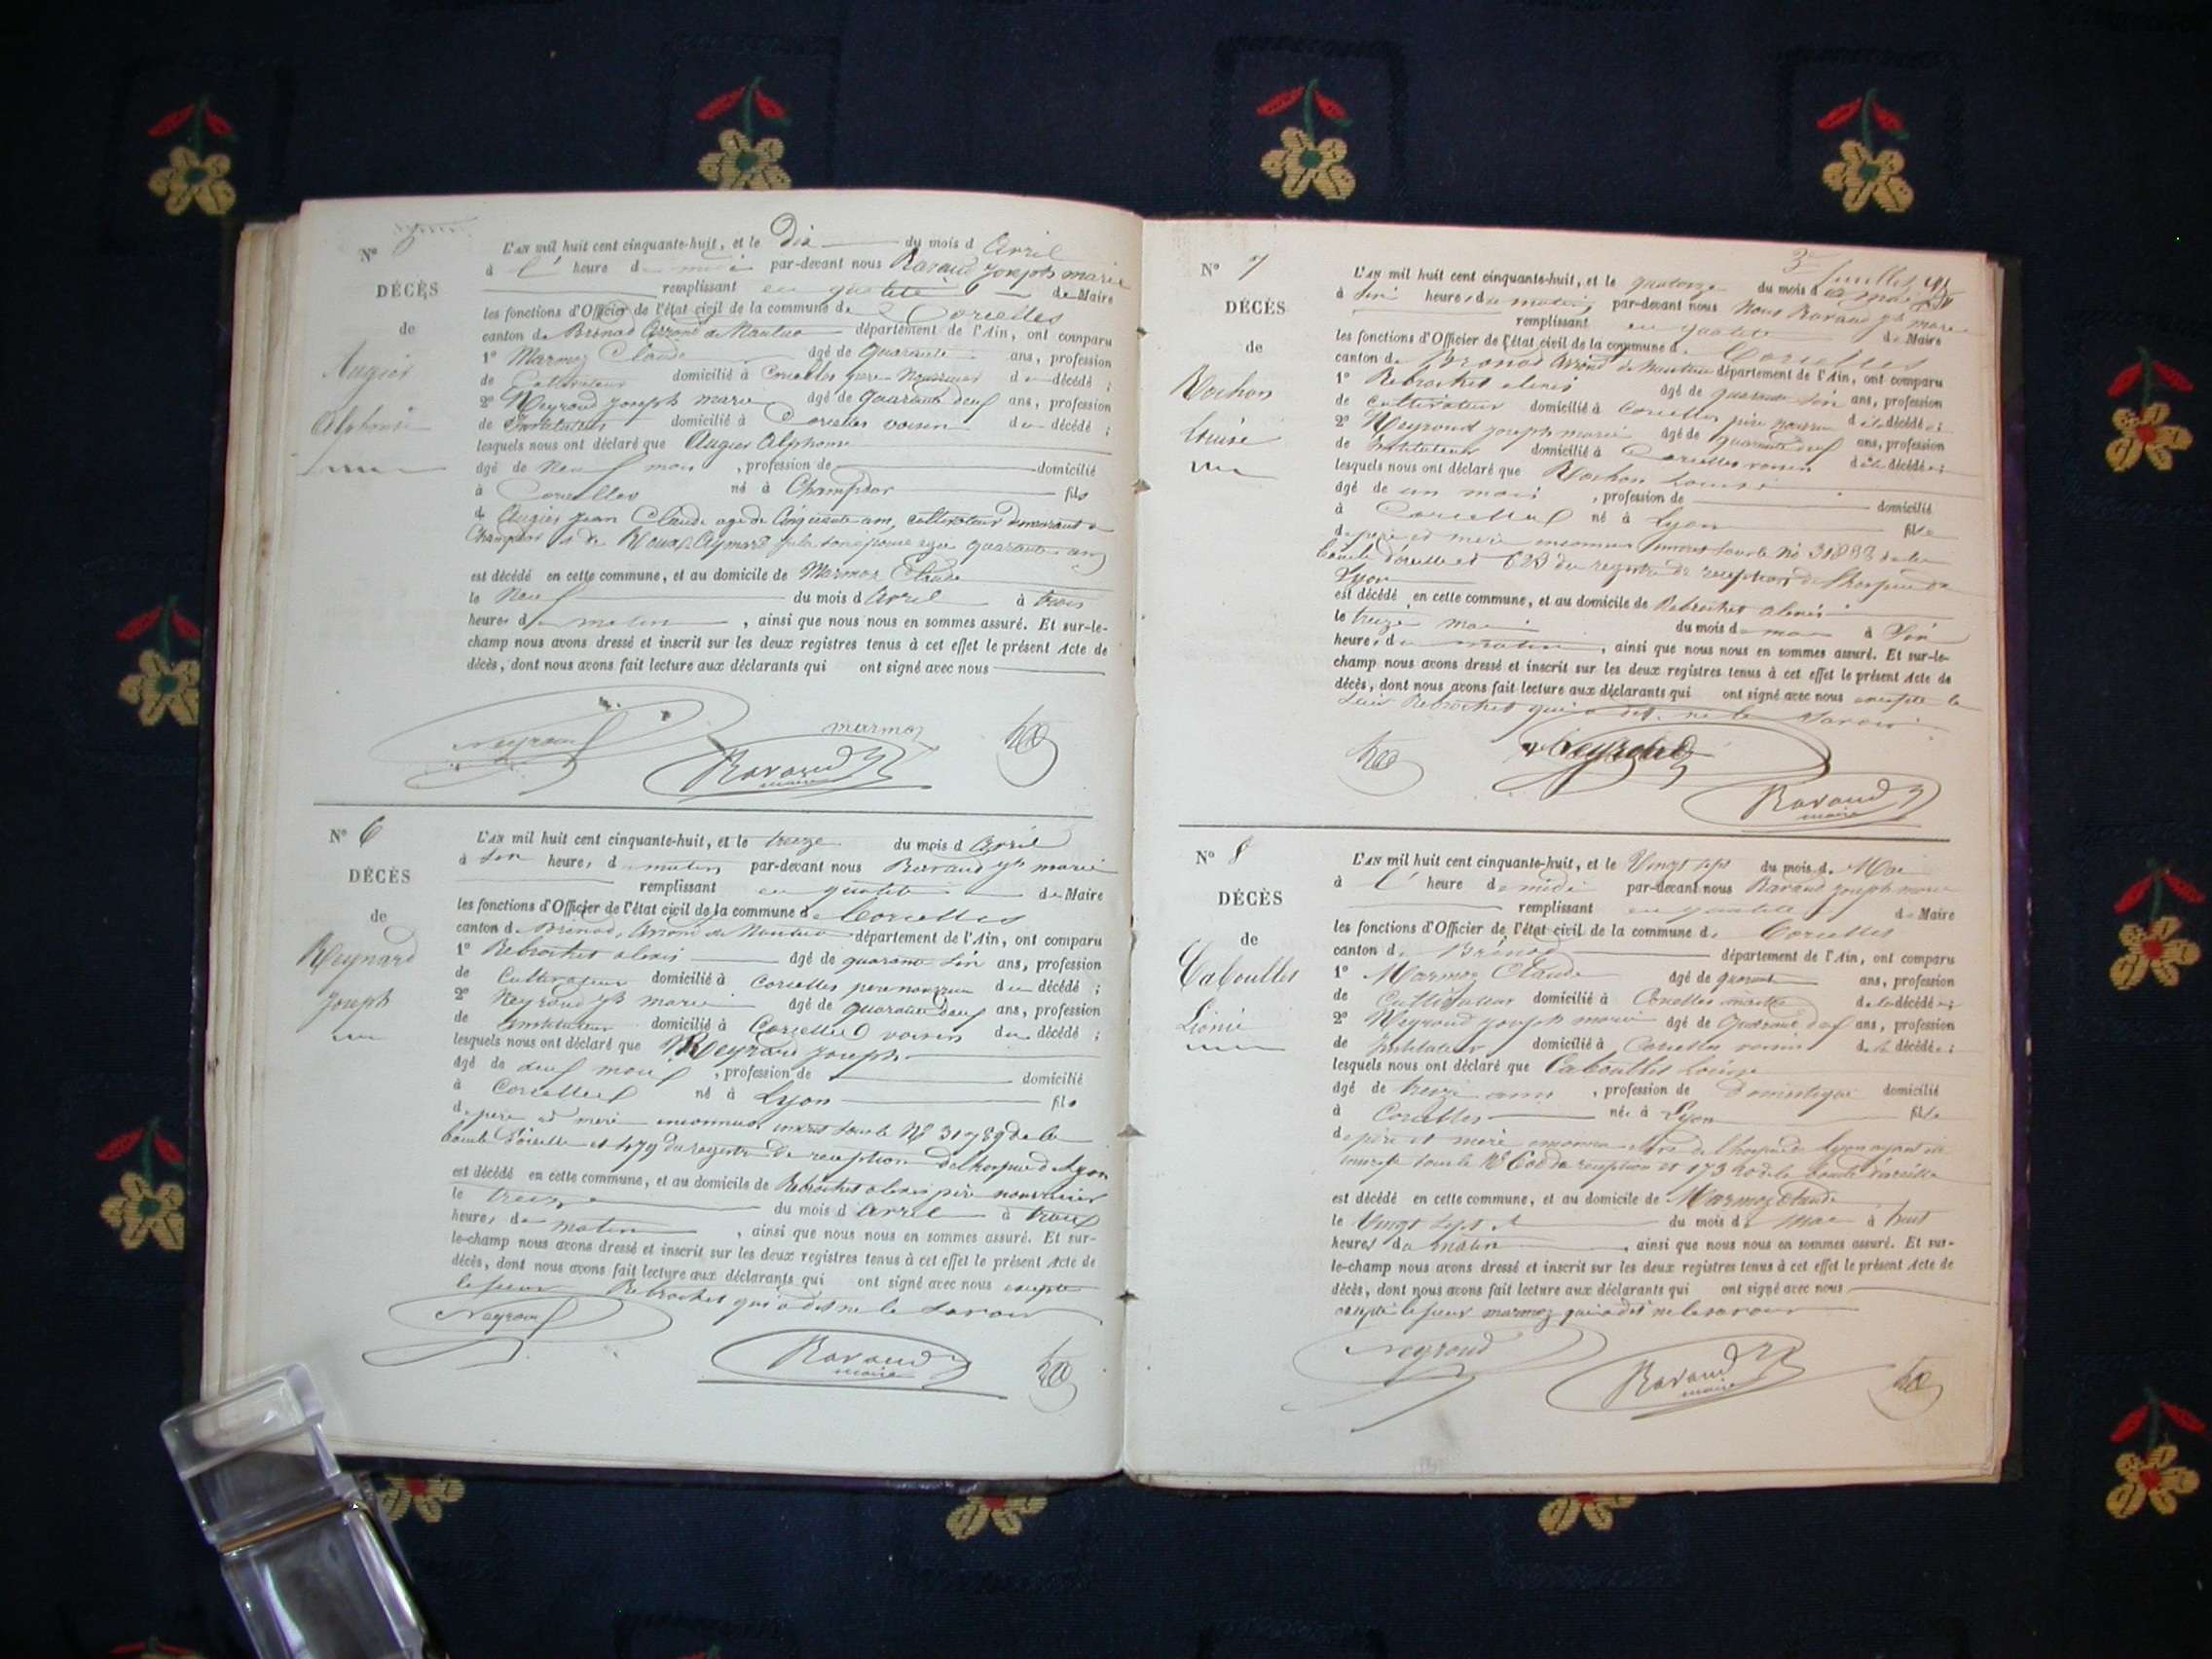 N° 5
DÉCÈS
de
Augier
Alphonse
L'AN mil huit cent cinquante-huit, et le Dix du mois d Avril
à l' heure de midi par-devant nous Ravaud Joseph marie
remplissant en qualité de Maire
les fonctions d'Officier de l'état civil de la commune de Corcelles
canton de Brénod Arrond de Nantua département de l'Ain, ont comparu
1° Marmoz Claude âgé de quarante ans, profession
de Cultivateur domicilié à Corcelles père Nourricier du décédé ;
2° Neyroud joseph marie âgé de quarante deuf ans, profession
de Instituteur domicilié à Corcelles voisin du décédé ;
lesquels nous ont déclaré que Augier Alphonse
âgé de Neuf mois , profession de domicilié
à Corcelles né à Champdor fils
de Augier Jean Claude age de Cinquante ans, cultivateur demeurant a
Champdor et de Roux Aymard agée quarante ans
est décédé en cette commune, et au domicile de Marmoz Claude
le Neuf du mois d Avril à trois
heures du matin , ainsi que nous nous en sommes assuré. Et sur-le-
champ nous avons dressé et inscrit sur les deux registres tenus à cet effet le présent Acte de
décès, dont nous avons fait lecture aux déclarants qui ont signé avec nous
marmoz
Neyroud
Ravaud
maire
N° 6
DÉCÈS
de
Reynard
Joseph
L'AN mil huit cent cinquante-huit, et le treize du mois d Avril
à Six heures du matin par-devant nous Ravaud jph marie
remplissant en qualité de Maire
les fonctions d'Officier de l'état civil de la commune de Corcelles
canton de Brénod, Arrond de Nantua département de l'Ain, ont comparu
1° Rebrochet alexis âgé de quarante Six ans, profession
de Cultivateur domicilié à Corcelles pere nourricier du décédé ;
2° Neyroud jph marie âgé de quarante deuf ans, profession
de Instituteur domicilié à Corcelles voisin du décédé ;
lesquels nous ont déclaré que Reynard joseph
âgé de deuf mois , profession de domicilié
à Corcelles né à Lyon fils
de père et mère inconnus inscrit sous le N° 31789 de la
boucle d'oreille et 479 du registre de reception de l'hospice de Lyon
est décédé en cette commune, et au domicile de Rebrochet alexis père nourricier
le treize du mois d avril à trois
heures du matin , ainsi que nous nous en sommes assuré. Et sur-
le-champ nous avons dressé et inscrit sur les deux registres tenus à cet effet le présent Acte de
décès, dont nous avons fait lecture aux déclarants qui ont signé avec nous excepté
le sieur Rebrochet qui a dit ne le savoir
Neyroud
Ravaud
maire
3e feuillet
N° 7
DÉCÈS
de
Rochon
Louise
L'AN mil huit cent cinquante-huit, et le quatorze du mois de mai
à Six heures du matin par-devant nous Nous Ravaud jph marie
remplissant en qualité de Maire
les fonctions d'Officier de l'état civil de la commune de Corcelles
canton de Brénod Arrond de Nantua département de l'Ain, ont comparu
1° Rebrochet alexis âgé de quarante Six ans, profession
de cultivateur domicilié à Corcelles père nourricier de la décédée ;
2° Neyroud joseph marie âgé de quarante deuf ans, profession
de Instituteur domicilié à Corcelles voisin de la décédée ;
lesquels nous ont déclaré que Rochon Louise
âgé de un mois , profession de domicilié
à Corcelles né à Lyon fille
de père et mère inconnus inscrit sous le N° 31882 de la
boucle d'oreille et 623 du registre de reception de l'hospice de
Lyon
est décédé en cette commune, et au domicile de Rebrochet alexis
le treize mai du mois de mai à Six
heures du matin , ainsi que nous nous en sommes assuré. Et sur-le-
champ nous avons dressé et inscrit sur les deux registres tenus à cet effet le présent Acte de
décès, dont nous avons fait lecture aux déclarants qui ont signé avec nous excepté le
Sieur Rebrochet qui a dit ne le Savoir
Neyroud
Ravaud
maire
N° 8
DÉCÈS
de
Caboulles
L'AN mil huit cent cinquante-huit, et le Vingt sept du mois de Mai
à l' heure de midi par-devant nous Ravaud joseph marie
remplissant en qualité de Maire
les fonctions d'Officier de l'état civil de la commune de Corcelles
canton de Brénod département de l'Ain, ont comparu
1° Marmoz Claude âgé de quarante ans, profession
de Cultivateur domicilié à Corcelles maitre de la décédée ;
2° Neyroud joseph marie âgé de quarante deuf ans, profession
de Instituteur domicilié à Corcelles voisin de la décédée ;
lesquels nous ont déclaré que Caboulles
âgé de treize ans , profession de Domestique domicilié
à Corcelles née à Lyon fille
de père et mère inconnus élève de l'hospice de Lyon ayant été
inscrite sous le N° de reception et 17320 de la boucle d'oreille
est décédé en cette commune, et au domicile de Marmoz Claude
le Vingt Sept du mois de Mai à huit
heures du matin , ainsi que nous nous en sommes assuré. Et sur-
le-champ nous avons dressé et inscrit sur les deux registres tenus à cet effet le présent Acte de
décès, dont nous avons fait lecture aux déclarants qui ont signé avec nous
excepté le sieur marmoz qui a dit ne le savoir
Neyroud
Ravaud
maire